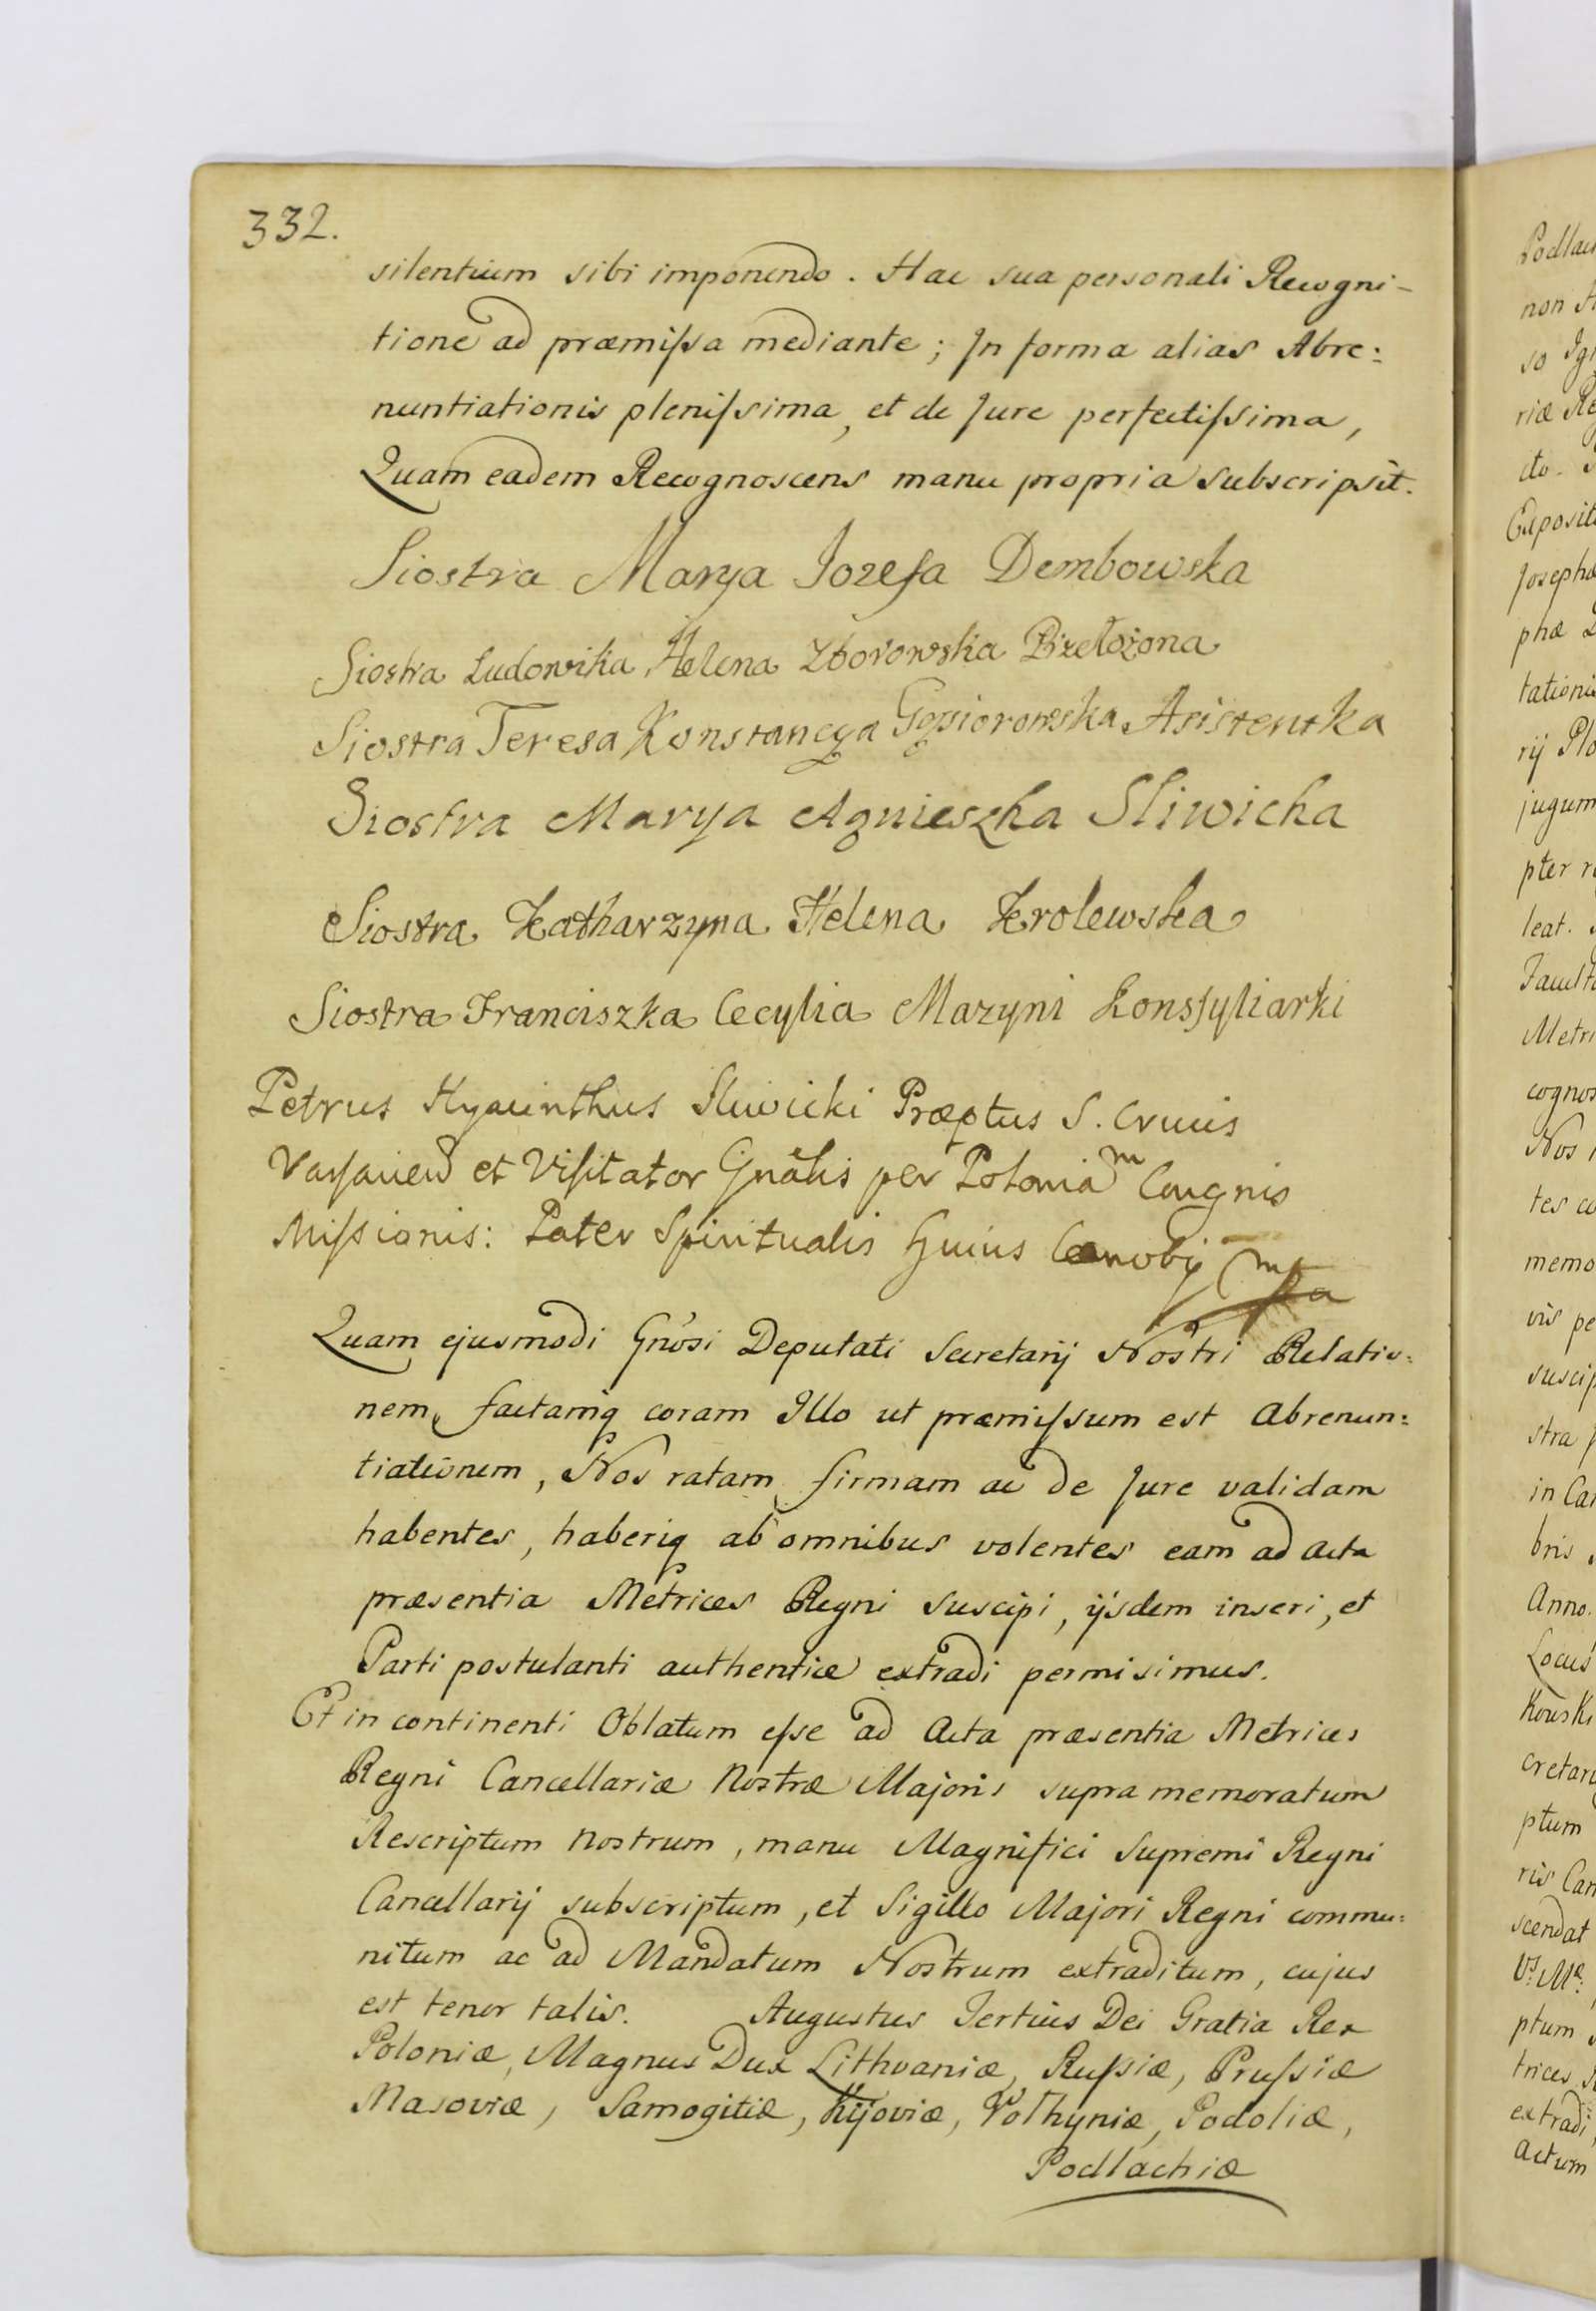 332.
silentium sibi imponendo. Hac sua personali Recogni-
tione ad præmissa mediante; In forma alias Abre:
nuntiationis plenissima, et de Jure perfectissima,
Quam eadem Recognoscens manu propria subscripsit.
Siostra Marya Iozefa Dembowska
Siostra Ludowika Helena Zborowska Przełożona
Siostra Teresa Konstancya Gąsiorowska Asistentka
Siostra Marya Agnieszka Sliwicka
Siostra Katharzyna Helena Krolewska
Siostra Franciszka Cecylia Mazyni Konssyliarki
Petrus Hyacinthus Sliwicki Præptus S. Crucis
et Visitator Gnãlis per Poloniam Congnis
Missionis: Pater Spiritualis hujus Cœnobij mpa
Quam ejusmodi Gnosi Deputati Secretarij Nostri Relatio:
nem, factamq coram Illo ut præmissum est Abrenun:
tiationem, Nos ratam firmam ac de Jure validam
habentes, haberiq ab omnibus volentes eam ad Acta
præsentia Metrices Regni suscipi, ijsdem inseri, et
Parti postulanti authentice extradi permisimus.
Et in continenti Oblatum esse ad Acta præsentia Metrices
Regni Cancellariæ Nostræ Majoris supra memoratum
Rescriptum Nostrum, manu Magnifici Supremi Regni
Cancellarij subscriptum, et Sigillo Majori Regni commu:
nitum ac ad Mandatum Nostrum extraditum, cujus
est tenor talis. Augustus Tertius Dei Gratia Rex
Poloniæ, Magnus Dux Lithvaniæ, Russiæ, Prussiæ
Masoviæ, Samogitiæ, Kijoviæ, Volhyniæ, Podoliæ,
Podlachiæ
non
so
riæ
jugum
leat.
tes
memo
in
Anno.
ptum
ptum
trices
extradi
Actum